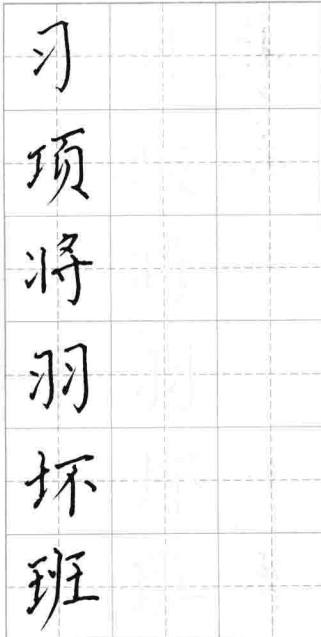 习
项
将
羽
坏
班